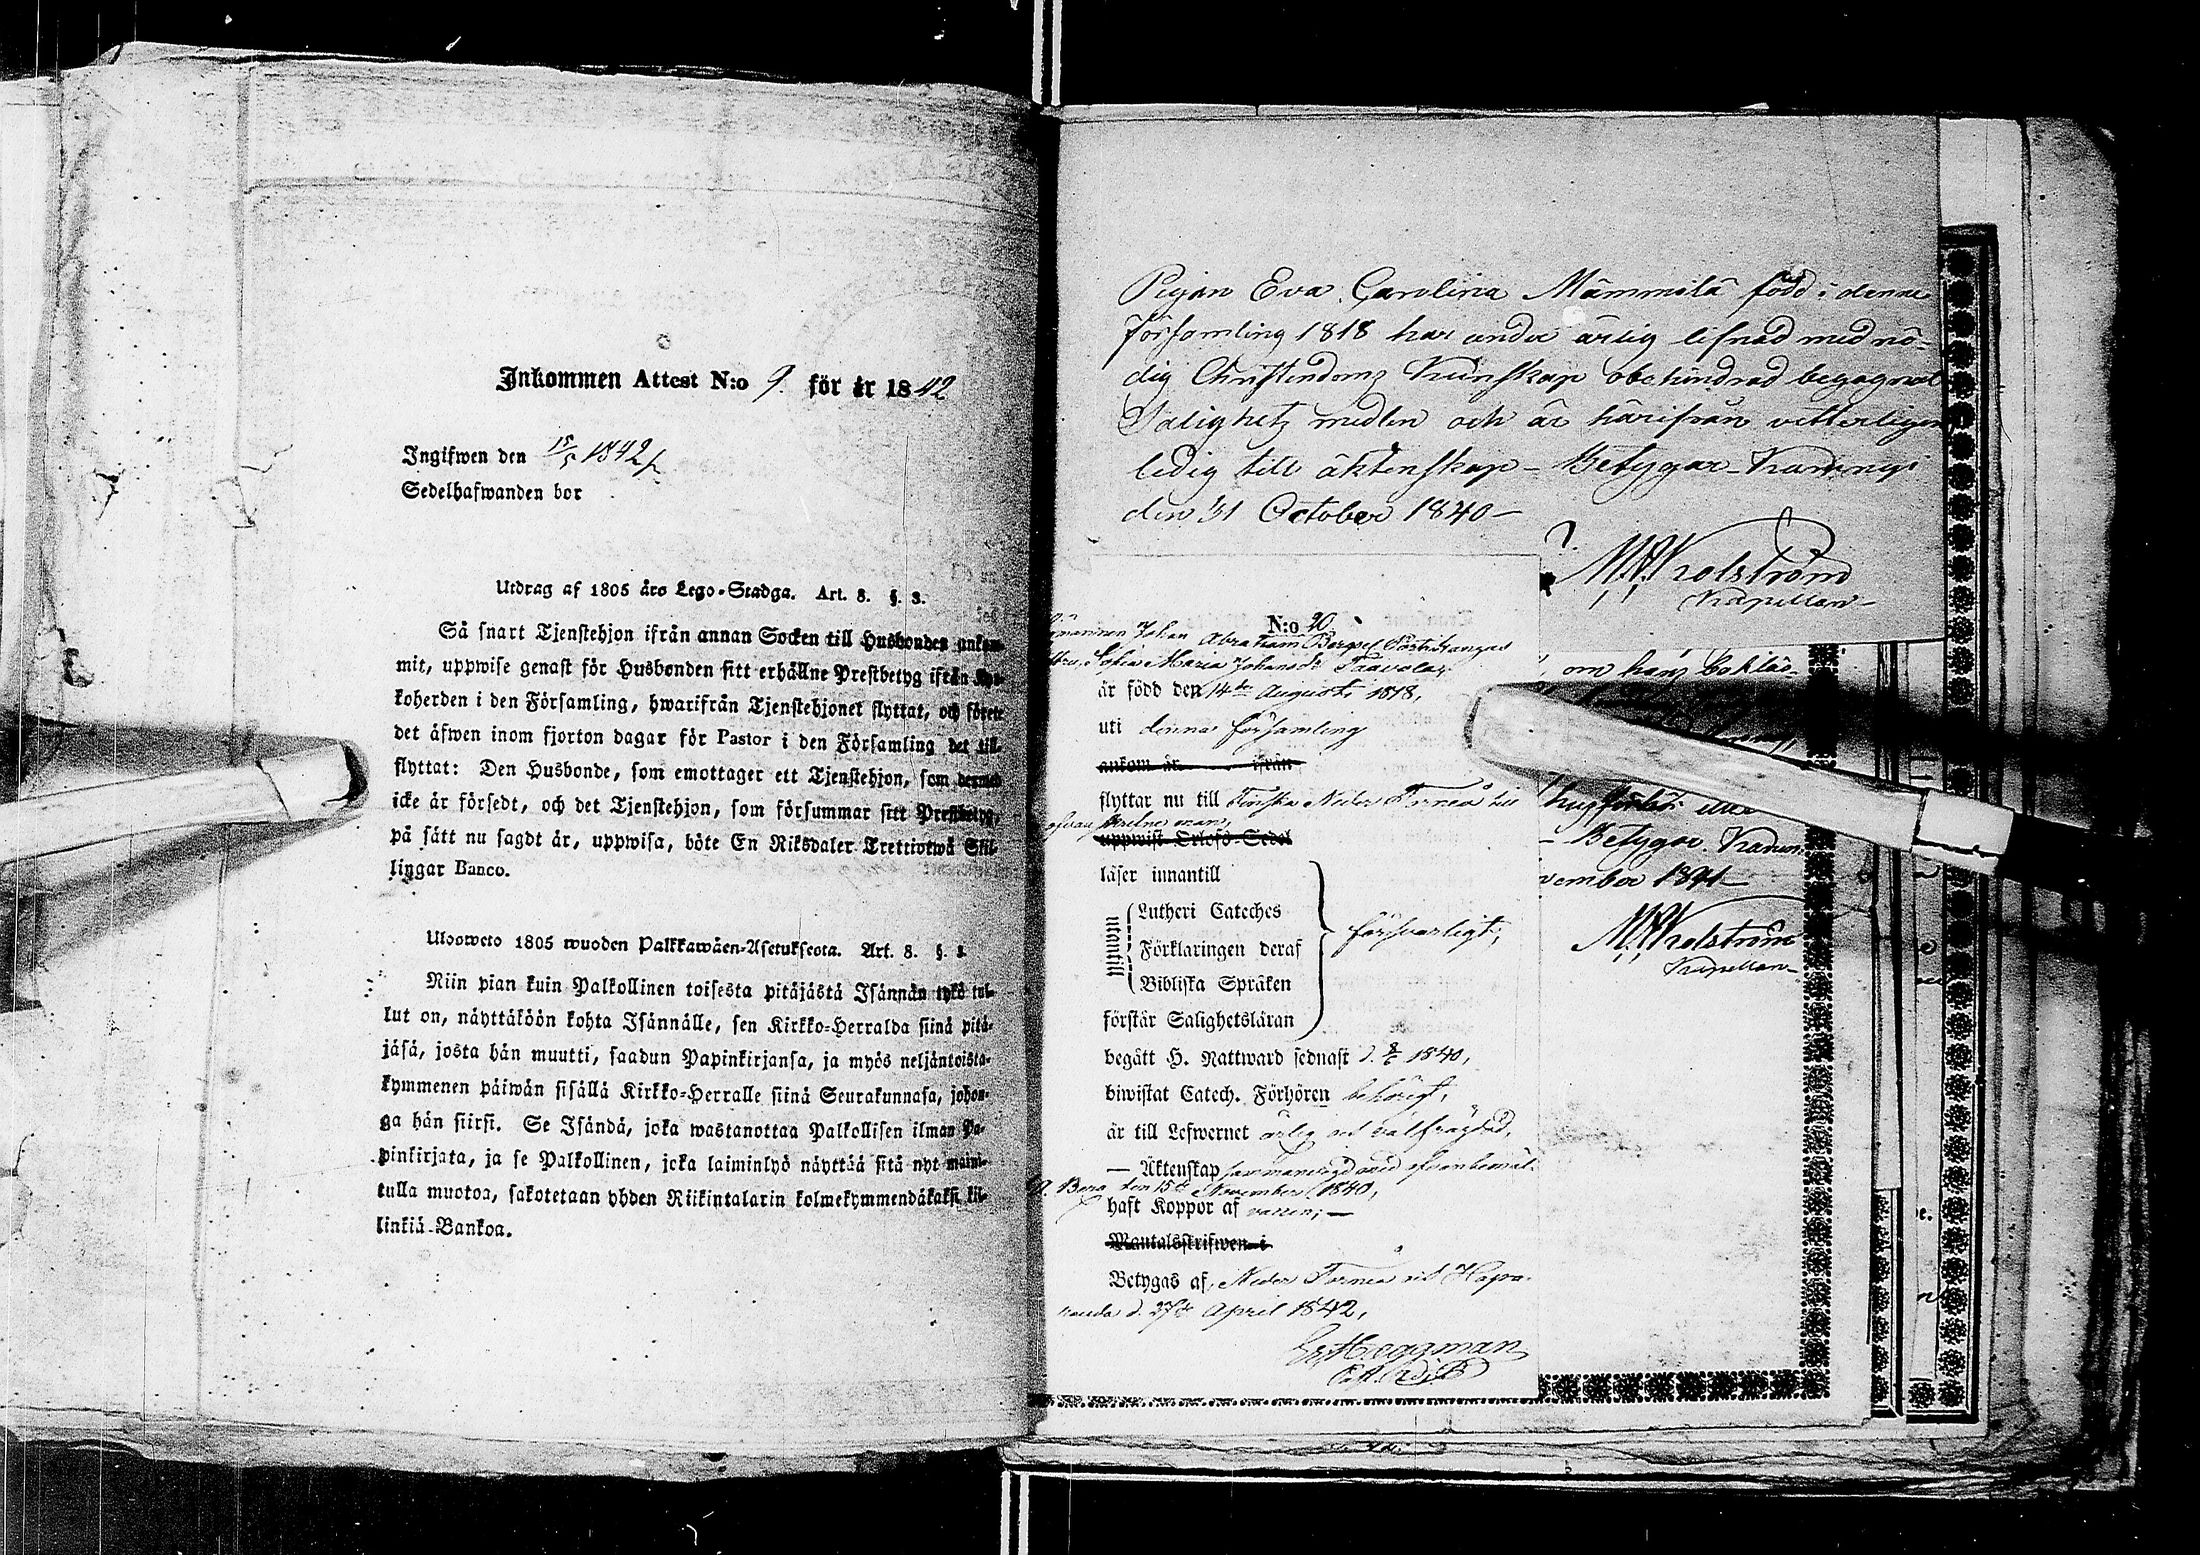 Inkommen Attest N:o 9. för år 1842
Ingifwen den 15/5 1842
Sedelhafwanden bor
Utdrag af 1805 års Lego-Stadga. Art. 8. §. 3.
Så snart Tjenstehjon ifrån annan Socken till Husbonden ankom-
mit, uppwise genast för Husbonden sitt erhållne Prestbetyg ifrån Kyr-
koherden i den Församling, hwarifrån Tjenstehjonet flyttat, och förete
det äfwen inom fjorton dagar för Pastor i den Församling det till-
flyttat: Den Husbonde, som emottager ett Tjenstehjon, som dermed
icke är försedt, och det Tjenstehjon, som försummar sitt Prestbetyg,
på sätt nu sagdt är, uppwisa, böte En Riksdaler Trettiotwå Skil-
lingar Banco.
Ulosweto 1805 wuoden Palkkawäen-Asetuksesta. Art. 8. §. 3.
Niin pian kuin Palkollinen toisesta pitäjästä Isännän tykö tul-
lut on, näyttäköön kohta Isännälle, sen Kirkko-Herralda siinä pitä-
jäsä, josta hän muutti, saadun Papinkirjansa, ja myös neljäntoista-
kymmenen päiwän sisällä Kirkko-Herralle siinä Seurakunnasa, johon-
ga hän siirsi. Se Isändä, joka wastanottaa Palkollisen ilman Pa-
pinkirjata, ja se Palkollinen, joka laiminlyö näyttää sitä nyt maini-
tulla muotoa, sakotetaan yhden Riikintalarin kolmekymmendäkaksi kil-
linkiä Bankoa.
Pigan Eva Carolina Mämmilä född i denna
församling 1818 har under ärlig lefnad med nö-
dig Christendoms Kunskap obehindrad begagnat
Salighets medlen och är härifrån vetterligen
ledig till äktenskap – Betygar Karungi
den 31 October 1840 –
Kapellan –
N:o 20.
Johan Abraham Portikangas
Sofia Maria Johansdr Paavola,
är född den 14de Augusti 1818,
uti denna församling
ankom år ifrån
flyttar nu till Finska Neder Torneå till
uppwist Orlofs-Sedel
läser innantill
utantill
Lutheri Cateches
Förklaringen deraf
Bibliska Språken
försvarligt,
förstår Salighetsläran
begått H. Nattward sednast d. 1840,
biwistat Catech. Förhören behörigt,
är till Lefwernet ärlig och välfrägdad,
— Äktenskap
den 15de November 1840,
haft Koppor af vaccin; —
Mantalsskrifwen i
Betygas af, Neder Torneå vid Hapa-
randa d. 27de April 1842,
om hans
Betygar Karun-
vember 1841
Kapellan –